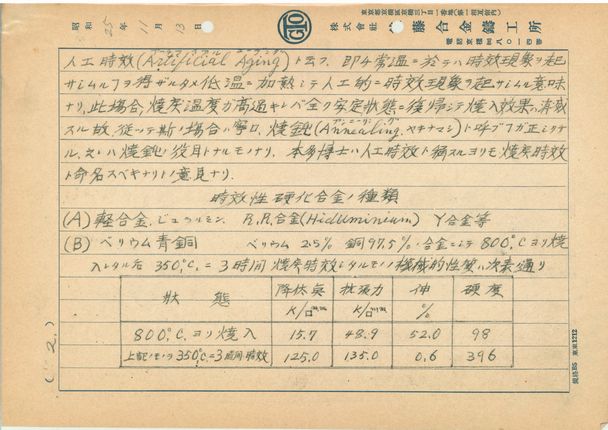 昭和25年11月13日
GTO
東京都京橋區京橋三丁目一番地(第一相互館内)
株式會社 藤合金鑄工所
電話京橋(56)八〇一四番
人工時效(Artificial Aging)ト云フ、即チ常温ニ於テハ時效現象ヲ起
サシムルヲ得ザルタメ低温ニ加熱シテ人工的ニ時效現象ヲ起サシム意味
ナリ、此場合、焼戻温度ガ高過キレバ全ク安定状態ニ復帰シテ焼入效果ハ消滅
スル故、従ッテ斯ル場合ハ寧ロ、焼鈍(Annealing、ヤキナマシ)ト呼ブガ正シクナ
ル、又ハ焼鈍ノ役目トナルモノナリ. 本多博士ハ人工時效ト稱スルヨリモ焼戻時效
ト命名スベキナリトノ意見ナリ.
時效性硬化合金ノ種類
(A) 軽合金. ジュラルミン. R.R.合金(Hiduminium) Y合金等
(B) ベリウム青銅 ベリウム 2.5% 銅97.5%ノ合金ニシテ 800°C.ヨリ焼
入シタル后 350°C.ニ3時間 焼戻時效シタルモノノ機械的性質ハ次表ノ通リ
状態 降伏点 抗張力 伸 % 硬度
800°C.ヨリ焼入 15.7 48.9 52.0 98
上記ノモノヲ350°C.ニ3時間時效 125.0 135.0 0.6 396
(2.)